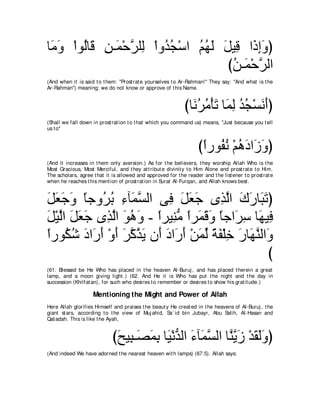 ﴿وَإِذَا قِيلَ لَهُمُ اسْجُدُواْ لِلرَّحْمَـنِ قَالُواْ وَمَا
الرَّحْمَـنُ﴾
(And when it is said to them: "Prostrate yourselves to Ar-Rahman!'' They say: "And what is the
Ar-Rahman'') meaning: we do not know or approve of this Name.
﴿أَنَسْجُدُ لِمَا تَأْمُرُنَا﴾
(Shall we fall down in prostration to that which you command us) means, "Just because you tell
us to''
﴿وَزَادَهُمْ نُفُوراً﴾
(And it increases in them only aversion.) As for the believers, they worship Allah Who is the
Most Gracious, Most Merciful, and they attribute divinity to Him Alone and prostrate to Him.
The scholars, agree that it is allowed and approved for the reader and the listener to prostrate
when he reaches this mention of prostration in Surat Al-Furqan, and Allah knows best.
﴿تَبَارَكَ الَّذِى جَعَلَ فِى السَّمَآءِ بُرُوجاً وَجَعَلَ
فِيهَا سِرَاجاً وَقَمَراً مُّنِيراً - وَهُوَ الَّذِى جَعَلَ الَّيْلَ
وَالنَّهَارَ خِلْفَةً لِّمَنْ أَرَادَ أَن يَذَّكَّرَ أَوْ أَرَادَ شُكُوراً
﴾
(61. Blessed be He Who has placed in the heaven Al-Buruj, and has placed therein a great
lamp, and a moon giving light.) (62. And He it is Who has put the night and the day in
succession (Khilfatan), for such who desires to remember or desires to show his gratitude.)
Mentioning the Might and Power of Allah
Here Allah glorifies Himself and praises the beauty He created in the heavens of Al-Buruj, the
giant stars, according to the view of Mujahid, Sa`id bin Jubayr, Abu Salih, Al-Hasan and
Qatadah. This is like the Ayah,
﴿وَلَقَدْ زَيَّنَّا السَّمَآءَ الدُّنْيَا بِمَصَـبِيحَ﴾
(And indeed We have adorned the nearest heaven with lamps) (67:5). Allah says: